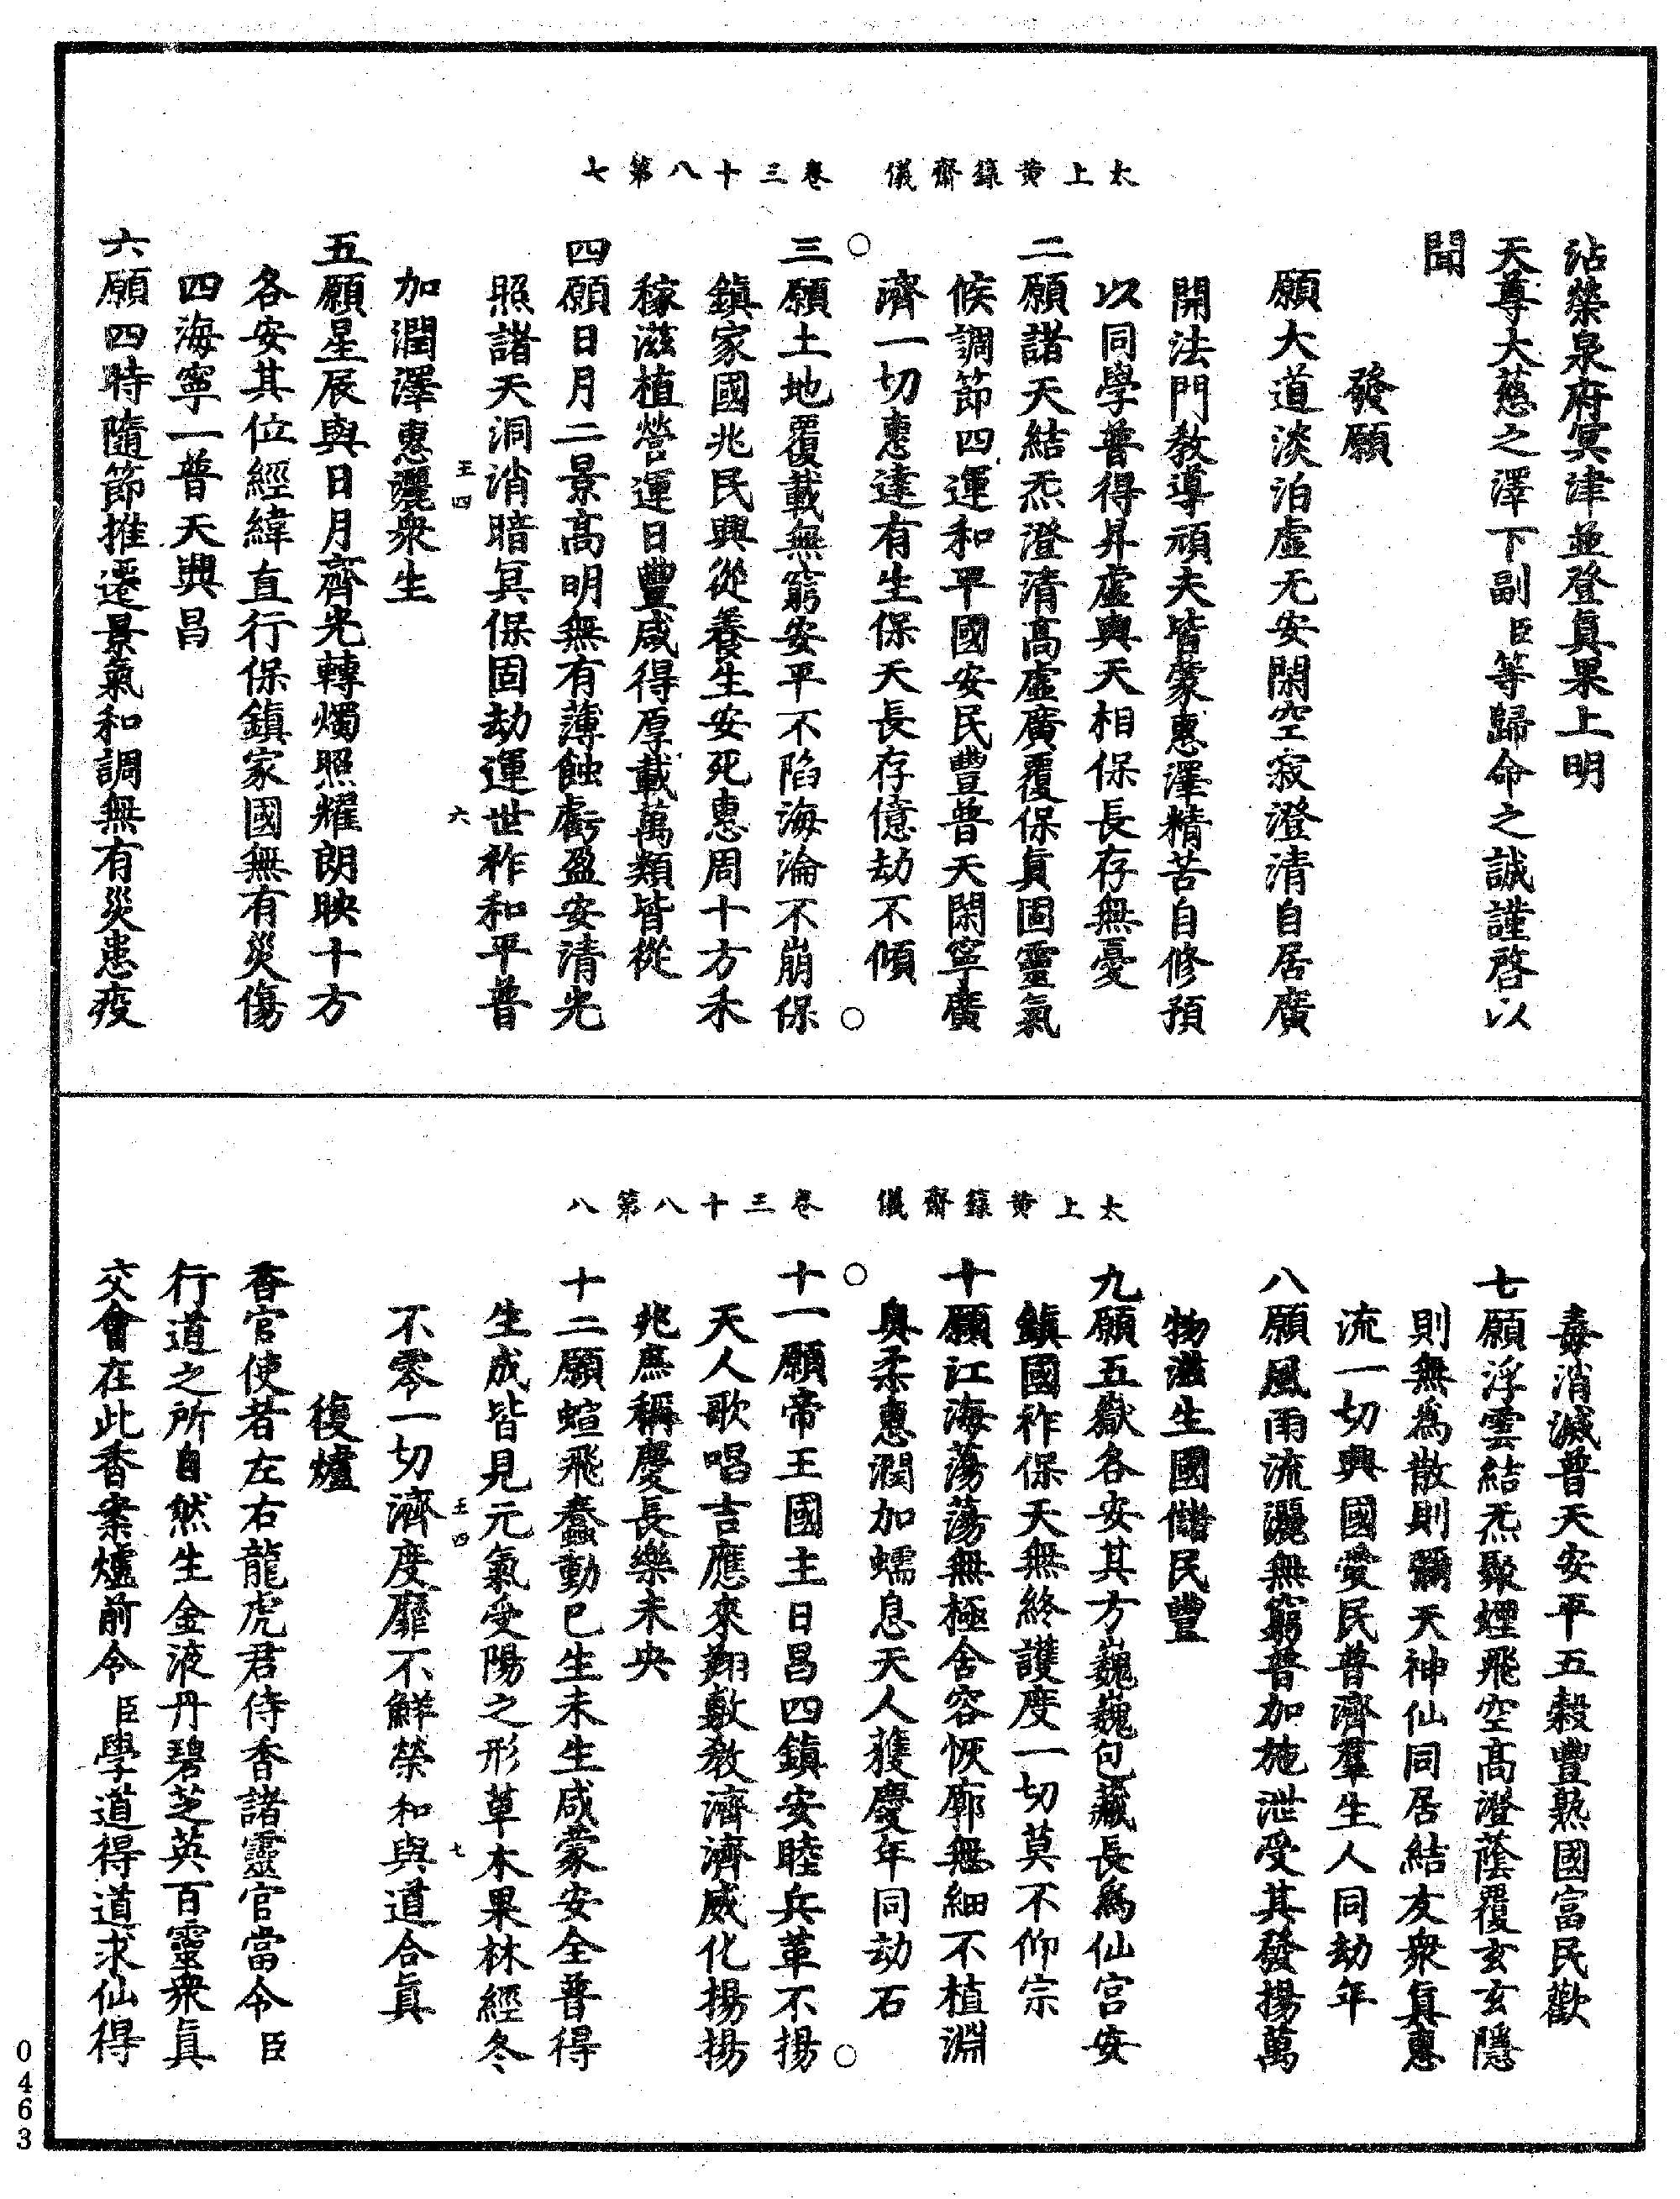 太上黃籙齋儀　卷三十八第七
沾榮泉府冥津並登眞果上明
天尊大慈之澤下副臣等歸命之誠謹啓以
聞
發願
願大道淡泊虛无安閑空寂澄清自居廣
開法門教導頑夫皆蒙惠澤精苦自修預
以同學普得昇虛與天相保長存無憂
二願諸天結炁澄清高虛廣覆保眞固靈氣
候調節四運和平國安民豐普天閑寧廣
濟一切惠逮有生保天長存億劫不傾
三願土地覆載無窮安平不陷海淪不崩保
鎮家國兆民興從養生安死惠周十方禾
稼滋植營運日豐咸得厚載萬類皆從
四願日月二景高明無有薄蝕虧盈安清光
照諸天洞消暗冥保固劫運世祚和平普
王四
六
加潤澤惠灑衆生
五願星辰與日月齊光轉燭照耀朗映十方
各安其位經緯直行保鎮家國無有災傷
四海寧一普天興昌
六願四時隨節推遷景氣和調無有災患疫
太上黃籙齋儀　卷三十八第八
毒消滅普天安平五穀豐熟國富民歡
七願浮雲結炁聚煙飛空高澄蔭覆玄玄隱
則無爲散則彌天神仙同居結友衆眞惠
流一切興國愛民普濟羣生人同劫年
八願風雨流灑無窮普加施泄受其發揚萬
物滋生國儲民豐
九願五嶽各安其方巍巍包藏長爲仙宮安
鎮國祚保天無終護度一切莫不仰宗
十願江海蕩蕩無極含容恢廓無細不植淵
奥柔惠潤加蠕息天人獲慶年同劫石
十一願帝王國主日昌四鎮安睦兵革不揚
天人歌唱吉應來翔敷教濟濟威化揚揚
兆庶稱慶長樂未央
十二願蝖飛蠢動已生未生咸蒙安全普得
生成皆見元氣受陽之形草木果林經冬
王四
七
不零一切濟度靡不鮮榮和與道合眞
復爐
香官使者左右龍虎君侍香諸靈官當令臣
行道之所自然生金液丹碧芝英百靈衆眞
交會在此香案爐前令臣學道得道求仙得
0463